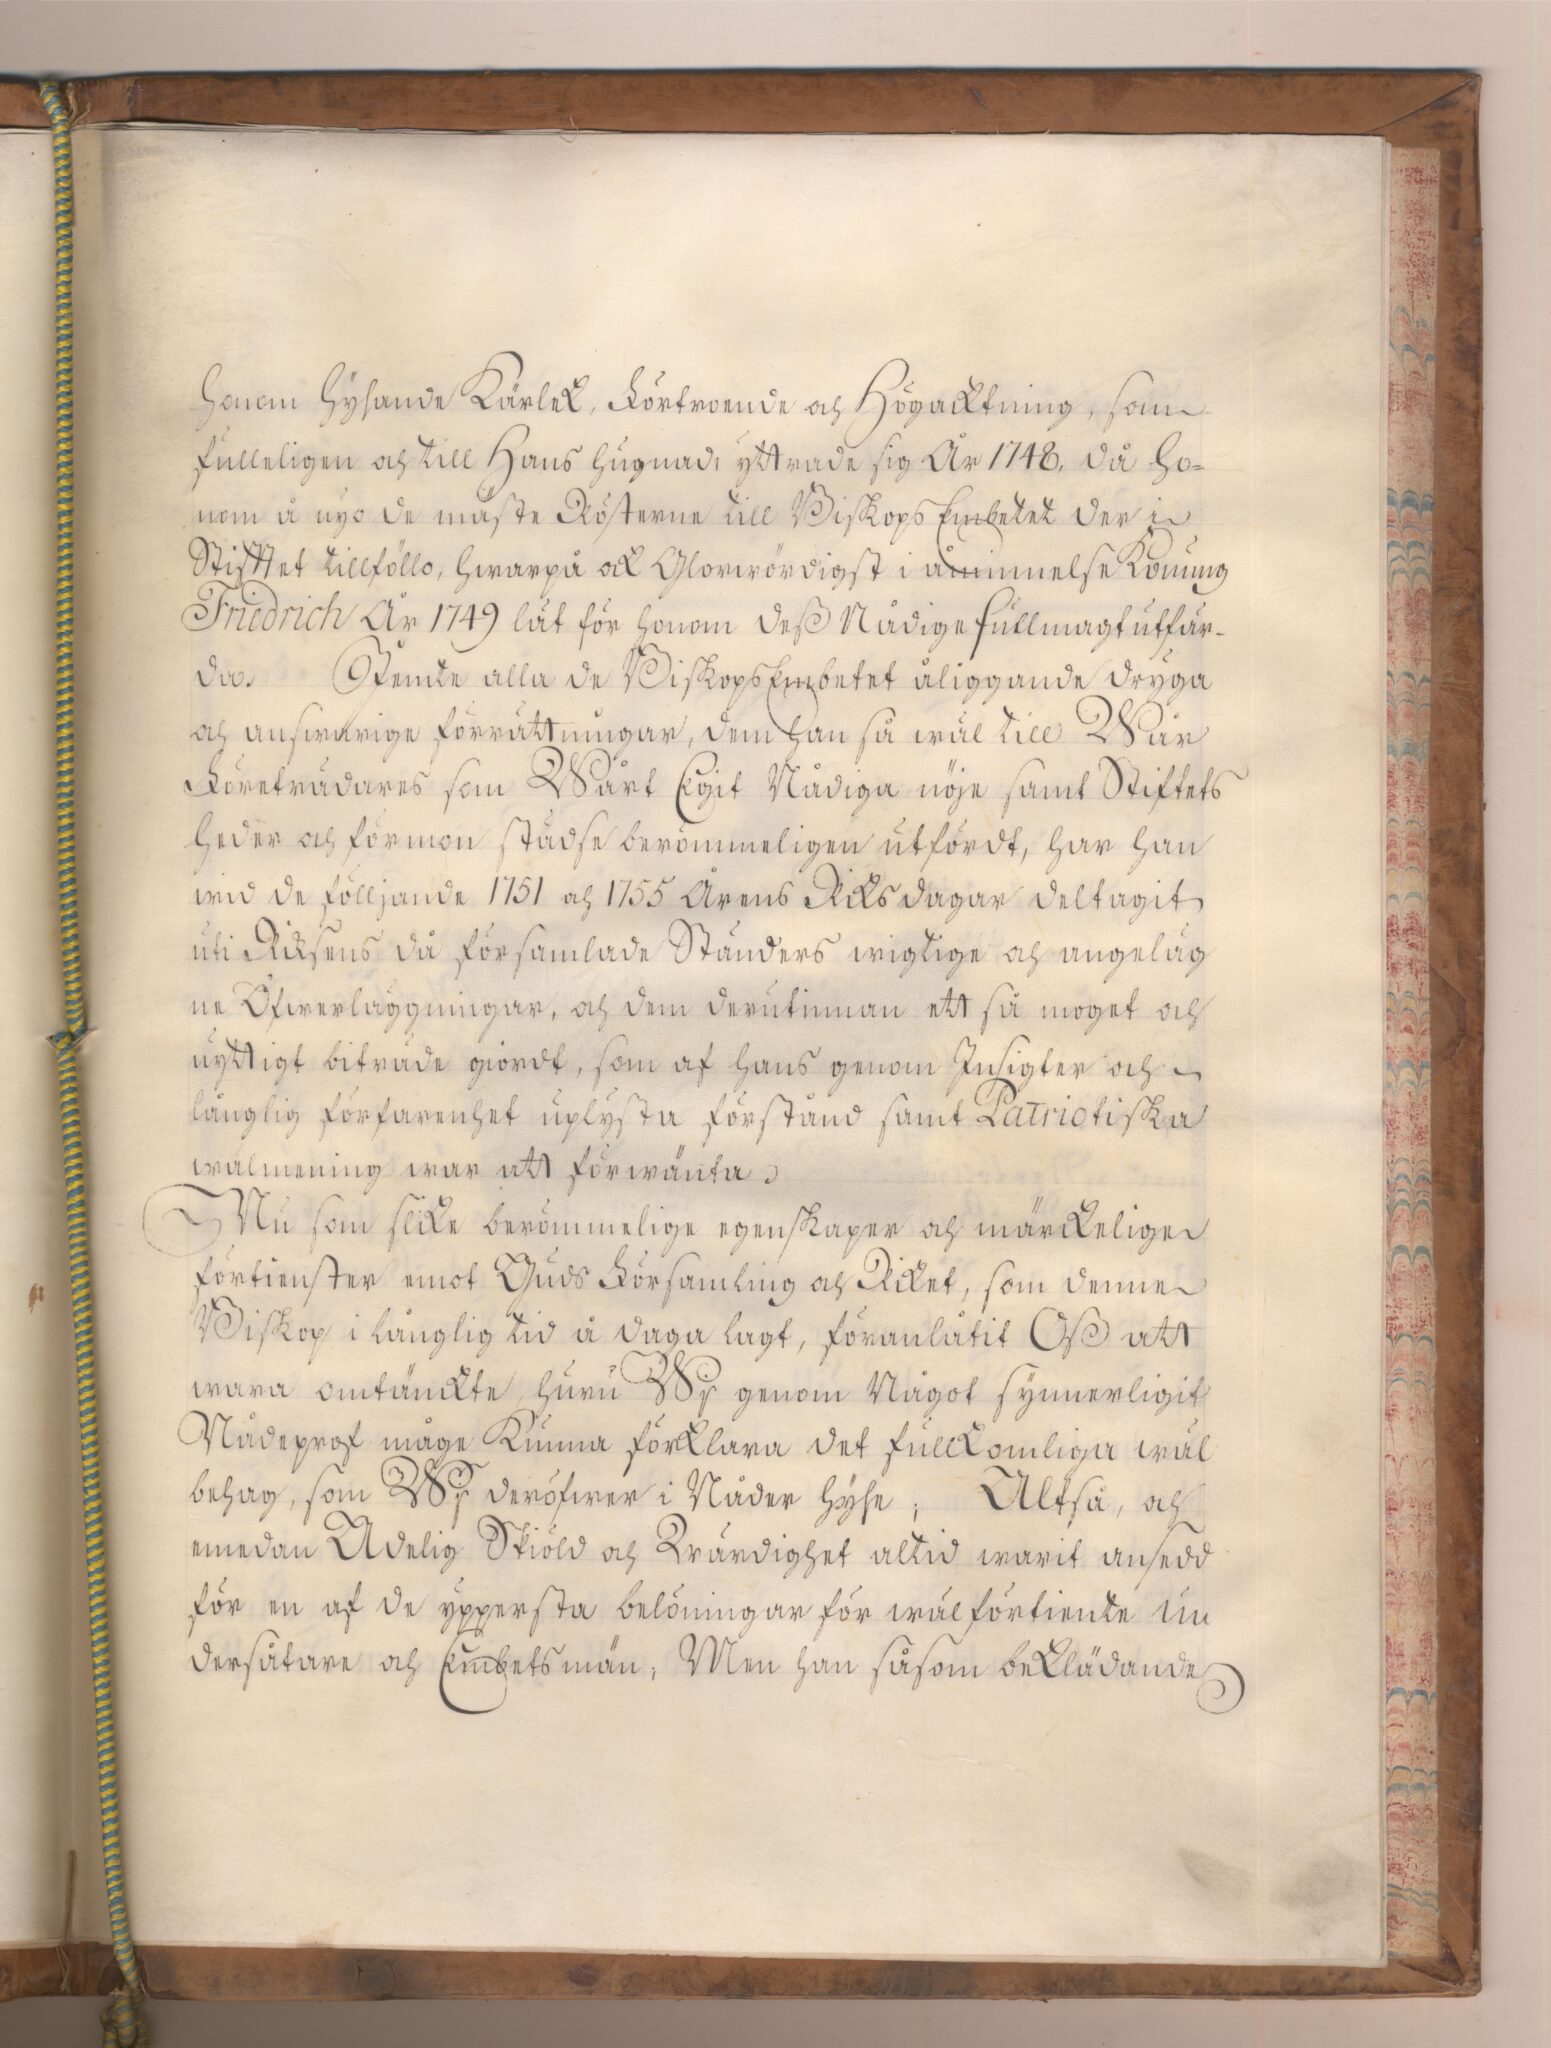 honom hysande Kärlek, Förtroende och Högacktning, som
fulleligen och till Hans hugnad, yttrade sig År 1748, då ho-
nom å nyo de mäste Rösterne till Biskops Embetet der i
Stifftet tillföllo, hwarpå ock Glorwördigst i åminnelse Konung
Friedrich År 1749 lät för honom deß Nådige fullmagt utfär-
da. Jemte alla de Biskops Embetet åliggande dryga
och answarige förrättningar, dem han så wäl till Wår
Företrädares som Wårt Egit Nådiga nöje samt Stiftets
heder och förmon städse berömmeligen utfördt, har han
wid de följande 1751 och 1755 Årens Riksdagar deltagit
uti Riksens då församlade Ständers wigtige och angeläg
ne Öfwerläggningar, och dem derutinnan ett så moget och
nyttigt biträde giordt, som af hans genom Insigter och
långlig förfarenhet uplysta förstånd samt Patriotiska
wälmening war att förwänta.
Nu som slike berömmelige egenskaper och märckelige
förtienster emot Guds Församling och Riket, som denne
Biskop i långlig tid å daga lagt, föranlåtit Oß att
wara omtänckte, huru Wij genom Något synnerligit
Nådeprof måge Kunna förklara det fullkomliga wäl
behag, som Wij deröfwer i Nåder hyse; Altså, och
emedan Adelig Skiöld och Wärdighet altid warit ansedd
för en af de yppersta belöningar för wälförtiente Un
dersåtare och Embetsmän; Men han såsom beklädande